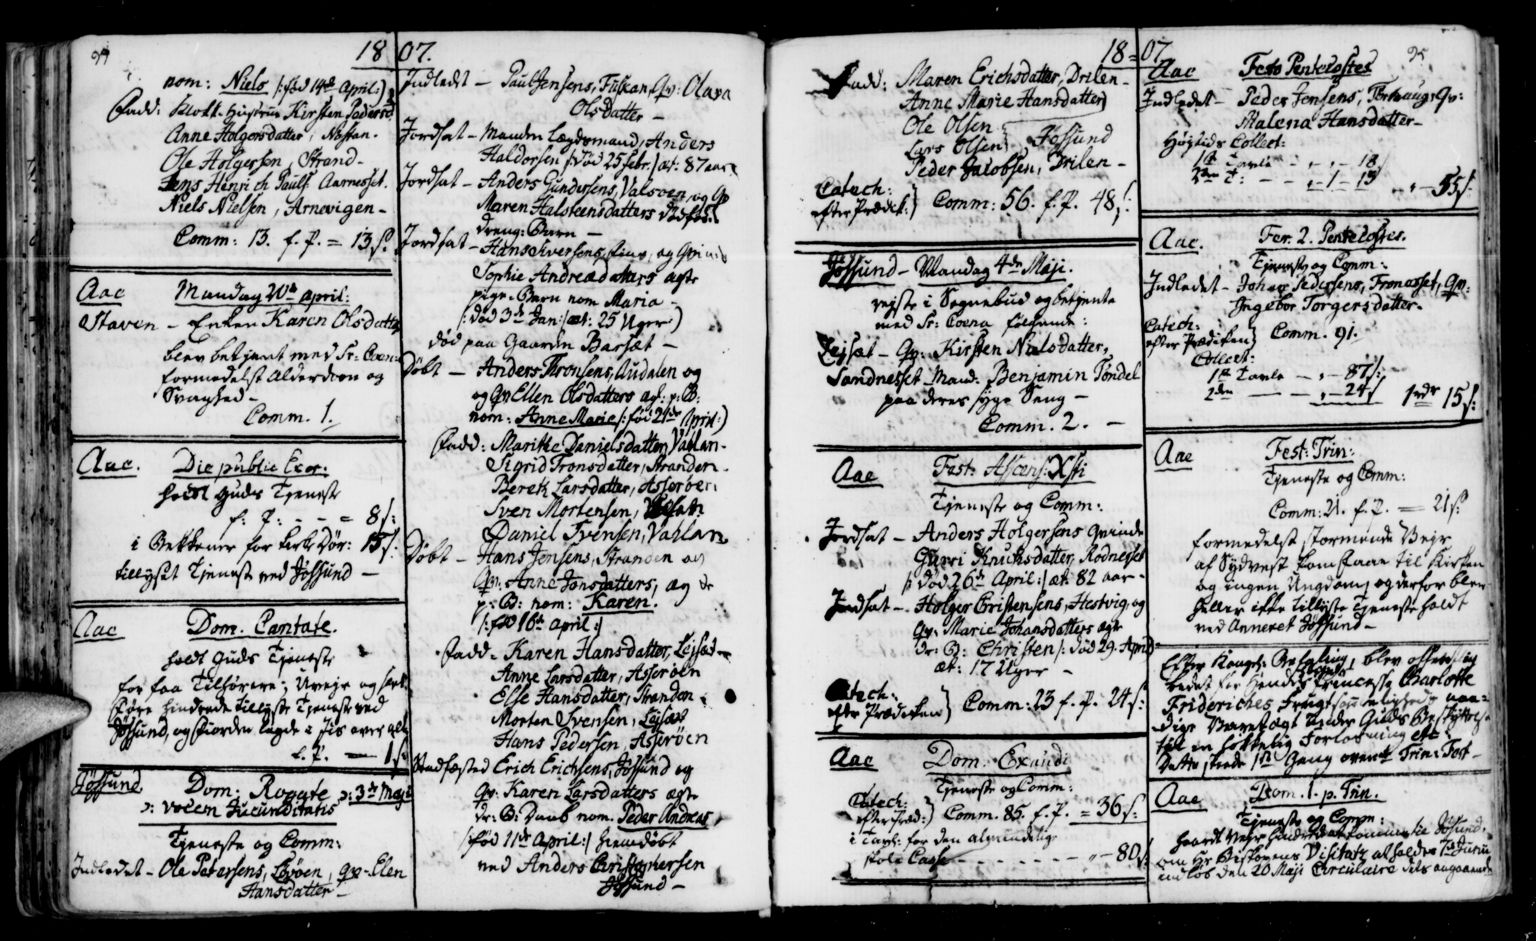 94
18 07.
nom: Niels /: fød 14de April :/
Fadd: Klokk. Hustrue Kirsten Pedersd
Anne Holgersdatter, Nessan.
Ole Holgersen, Strand-
Jens Henrich Pauls Aarnesset.
Niels Nielsen, Arnevigen-
Comm: 13. f. P. = 13 s.
Aae Mandag 20de April:
Staven - Enken Karen Olsdatter
blev betjent med Sr: Coena
formedelst Alderdom og
Svaghed-
Comm. 1.
Aae. Die public Exer:
holdt Guds Tjeneste
f: P: - - = 8 s:
i Bekkener for Kirkedør: 15 s:
tillyset Tjeneste ved Jössund -
Aae Dom. Cantate.
holdt Guds Tjeneste
for faa Tilhörere; Uveir og
hindrede tillyste Tjeneste ved
Jössund, og Fiorden lagde i Iis over alt
f. P. — 1 s:
Jössund Dom: Rogate ɔ: 3de Maji
ɔ: vocem Jucunditatis
Tjeneste og Comm:
Indledet - Ole Petersens, Lövöen, Qv- Elen
Hansdatter -
Indledt - Paul Jensens, Fulkan Qv: Olava
Olsdatter -
Jordsat - Manden Lægdsmand, Anders
Haldorsen /: död 25 Febr: / æt: 87 aar
Jordsat - Anders Gundersens, Valsöen, og Qv
Maren Halsteensdatters
dreng: Barn -
Jordsat - Hans Iversens, og Qvinde
Sophie Andreædatters ægte
pige-Barn nom Maria -
/: död 3de Jan: / æt: 25 Uger :/
död paa Gaarden Barsæt -
Döbt — Anders Thronsens, Audalen og
og Qv Ellen Olsdatters æg: p: B:
nom: Anne Marie /: föd 21de April :/
Fadd: Maritte Danielsdatter, Vahlan-
Sigrid Tronsdatter, Stranden-
Bereth Larsdatter, Asseröen:
Sven Mortensen, Vahlan
Daniel Svensen, Vahlan
Döbt - Hans Jensens, Stranden og
Qv: Anne Jonsdatters, æg te
p: B: nom: Karen.
/: föd 16de April :/
Fadd. Karen Hansdatter, Lejsæt -
Anne Larsdatter, Asseröen
Else Hansdatter, Stranden
Morten Svensen, Lejsæt
Hans Pedersen, Asseröen
Stadfæsted Erich Erichsens, Jössund og
Qv: Karen Larsdatters ægte
dr: B: Daab nom. Peder Andreas
/: föd 11te April :/ hiemdöbt
ved Anders Christophersen
Jössund -
18 07 95
Fadd: Maren Erichsdatter, Drilen-
Anne Marie Hansdatter
Ole Olsen
Lars Olsen Jössund
Peder Jacobsen, Drilen -
Catech:
efter Prædik: } Comm: 56. f. P. 48 s:
Jössund - Mandag 4de Maji.
rejste i Sognebud og betjente
med Sr: Coena fölgende:
Lejsæt - Qv: Kirsten Nielsdatter,
Sandnesset Mand: Benjamin Töndel
paa deres syge Seng -
Comm. 2. -
Aae Fest: Ascens: Xsti
Tjeneste og Comm:
Jordsat - Anders Holgersens Qvinde
Guri Knudsdatter, Rodnesset
/: död 26de April: / æt 82 aar -
Jordsat - Holger Christensens, Hestvig, og
Qv: Marie Johansdatters ægte
dr: B: Christen /: död 29. April
æt: 17 Uger -
Catech:
efter Prædiken } Comm: 23 f. P. 24 s:
Aae Dom: Exaudi
Tjeneste og Comm:
Catech:
efter Præd: } Comm: 85. f. P. = 36 s:
i Tavl: for den almindelige
skole Casse - - - - - - „ - 80 s
Aae Festo Pentecostes
Indledet - Peder Jensens, Qv:
Malena Hansdatter -
Höytids Collect:
1ste Tavle - „ - „ - 18
2den T: - - „ - 1 - 13 - „ - 55 s:
Aae. Fer: 2. Pentecostes.
Tjeneste og Comm:
Indledet - Johan Pedersens, Fronesset, Qv:
Ingebor Torgersdatter.
Catech:
efter Prædiken } Comm. 91.
Collect:
1ste Tavle — „ - 87 s:
2den — „ - 24 1 rdr 15 s:
Aae Fest: Trin:
Tjeneste og Comm:
Comm: 21. f. P. — 21 s:
formedelst stormende Vejr
af Sydvest kom faae til Kirken
og ingen Ungdom, og derfor blev
heller ikke tillyste Tjeneste holdt
ved Annexet Jössund -
Efter Kongel: Befaling, blev offentlig
bedet for Hendes Princesse Charlotte
Friderichs Frugtsommelighed, naa-
dige Varetægt under Guds Beskyttelse
til en lykkelig Forlösning etc:
Dette skeede 1ste Gang ovent: Trin: Fest -
Aae Dom. 1. p. Trin.
Tjeneste og Comm:
haardt Vejr hindrede at komme til Jössund,
om Hr Biskopens Visitatz afholdes
indlöb den 20 Maji Circulaire dets angaaende